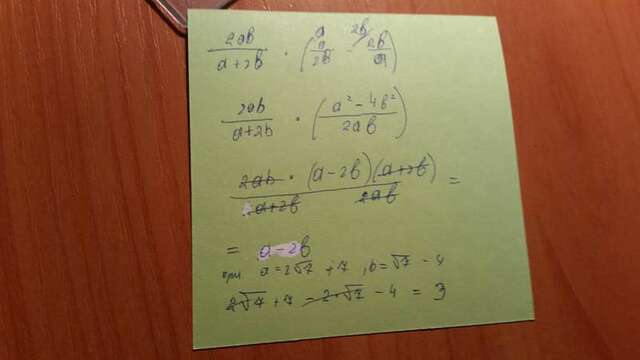 2ab/(a+2b) · (a/2b - 2b/a) a 2b
2ab/(a+2b) · ((a² - 4b²)/2ab)
2ab · (a-2b)(a+2b) / a+2b 2ab =
= a-2b
при a=2√7 +7, b=√7 - 4
2√7 +7 = 2·√7 - 4 = 3